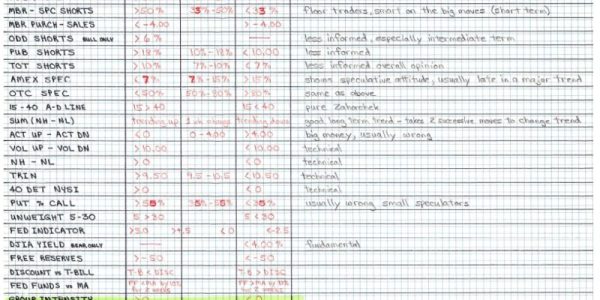 MBR - SPC SHORTS >50% 35%-50% <35% floor traders, smart on the big moves (short term)
MBR PURCH - SALES < -4.00 > -4.00
ODD SHORTS BULL ONLY > 6% —— less informed, especially intermediate term
PUB SHORTS >12% 10%-12% < 10.00 less informed
TOT SHORTS >10% 7%-10% < 7% less informed overall opinion
AMEX SPEC < 7% 7%-15% > 15% shows speculative attitude, usually late in a major trend
OTC SPEC <50% 50%-80% > 80% same as above
15-40 A-D LINE 15 > 40 15 < 40 pure Zahorchek
SUM (NH - NL) trending up 1 wk change trending down good long term trend - takes 2 successive moves to change trend
ACT UP - ACT DN < 0 0-4.00 > 4.00 big money, usually wrong
VOL UP - VOL DN > 10.00 < 10.00 technical
NH - NL > 0 < 0 technical
TRIN > 9.50 9.5-10.5 < 10.50 technical
40 DET NYSI > 0 < 0 technical
PUT % CALL > 55% 35%-55% < 35% usually wrong small speculators
UNWEIGHT 5-30 5 > 30 5 < 30
FED INDICATOR >5.0 >4.5 < 0 <-2.5
DJIA YIELD BEAR ONLY —— < 4.00% fundamental
FREE RESERVES > -50 < -50
DISCOUNT vs T-BILL T-B < DISC T-B > DISC
FED FUNDS vs MA FF < MA by for 2 weeks FF > MA by for 2 weeks
GROUP INTENSITY > 0 < 0